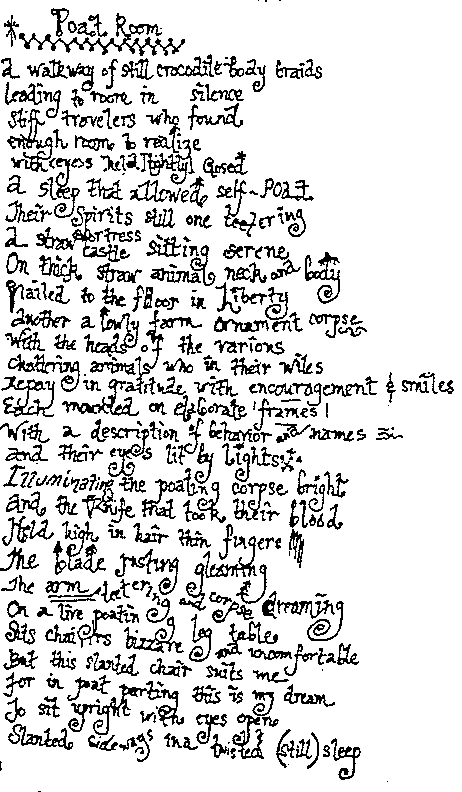 Poat Room
a walkway of still crocodile body braids
leading to room in silence
stiff travelers who found
enough room to realize
with eyes held [tightly] closed
a sleep that allowed self-Poat
Their spirits still one teetering
a straw fortress castle sitting serene
On thick straw animal neck and body
Nailed to the floor in Liberty
another a lowly farm ornament corpse
With the heads of the various
chattering animals who in their wiles
Repay in gratitude with encouragement & smiles
Each mounted on elaborate frames!
With a description of behavior and names
and their eyes lit by lights
Illuminating the poating corpse bright
And the Knife that took their blood
Held high in hair thin fingers
The blade rusting gleaming
The arm teetering and corpse dreaming
On a live poating
Sits chairs bizzare leg table and uncomfortable
But this slanted chair suits me
For in poat parting this is my dream
To sit upright with eyes open
Slanted sideways in a twisted (still) sleep